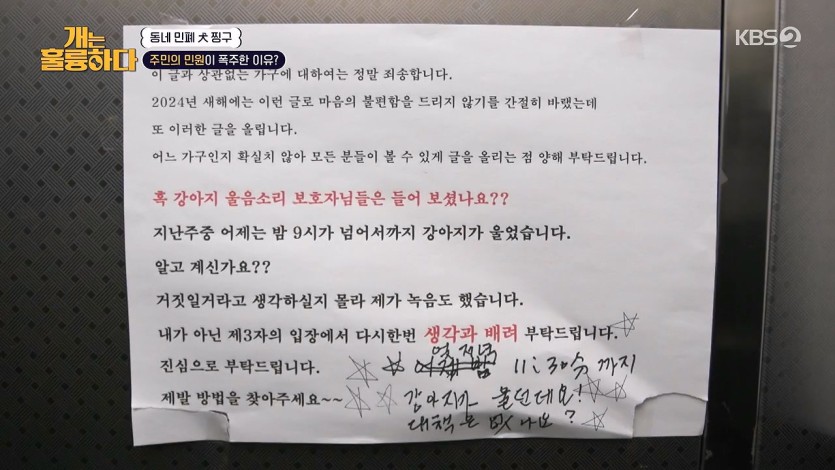 개는
훌륭하다
동네 민폐 犬 찡구
주민의 민원이 폭주한 이유?
KBS2
이 글과 상관없는 가구에 대하여는 정말 죄송합니다.
2024년 새해에는 이런 글로 마음의 불편함을 드리지 않기를 간절히 바랬는데
또 이러한 글을 올립니다.
어느 가구인지 확실치 않아 모든 분들이 볼 수 있게 글을 올리는 점 양해 부탁드립니다.
혹 강아지 울음소리 보호자님들은 들어 보셨나요??
지난주중 어제는 밤 9시가 넘어서까지 강아지가 울었습니다.
알고 계신가요??
거짓일거라고 생각하실지 몰라 제가 녹음도 했습니다.
내가 아닌 제3자의 입장에서 다시한번 생각과 배려 부탁드립니다.
진심으로 부탁드립니다.
11:30分 까지
제발 방법을 찾아주세요~~
강아지가 울던데요!
대책은 없나요?